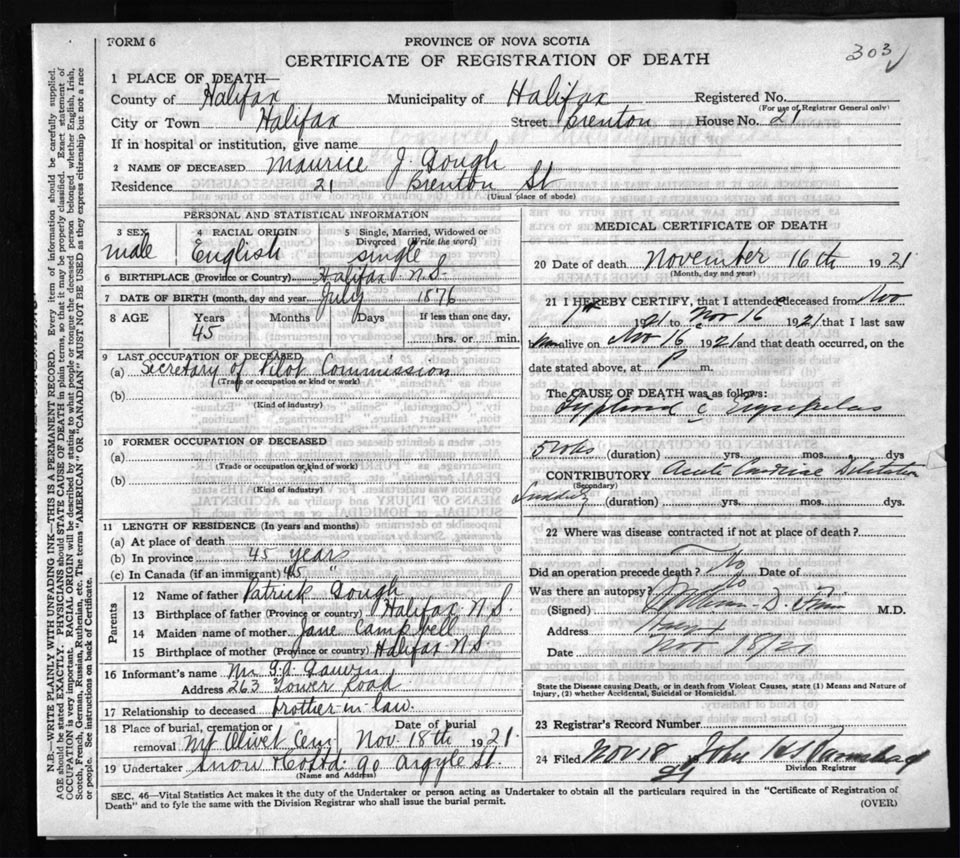 FORM 6
PROVINCE OF NOVA SCOTIA
303
CERTIFICATE OF REGISTRATION OF DEATH
1 PLACE OF DEATH—
County of Halifax Municipality of Halifax Registered No.
(For use of Registrar General only)
City or Town Halifax Street Brenton House No. 21
If in hospital or institution, give name
2 NAME OF DECEASED Maurice J. Gough
Residence 21 Brenton St
(Usual place of abode)
PERSONAL AND STATISTICAL INFORMATION
3 SEX 4 RACIAL ORIGIN 5 Single, Married, Widowed or Divorced (Write the word)
male English single
6 BIRTHPLACE (Province or Country) Halifax N.S.
7 DATE OF BIRTH (month, day and year July 1876
8 AGE Years Months Days If less than one day,
45 hrs. or min.
9 LAST OCCUPATION OF DECEASED
(a) Secretary of Pilot Commission
(Trade or occupation or kind or work)
(b)
(Kind of industry)
10 FORMER OCCUPATION OF DECEASED
(a)
(Trade or occupation or kind of work
(b)
(Kind of industry)
11 LENGTH OF RESIDENCE (In years and months)
(a) At place of death
(b) In province 45 years
(c) In Canada (if an immigrant) 45 "
Parents
12 Name of father Patrick Gough
13 Birthplace of father (Province or country) Halifax N.S.
14 Maiden name of mother Jane Campbell
15 Birthplace of mother (Province or country) Halifax N.S.
16 Informant's name Mr
Address 263 Tower Road
17 Relationship to deceased brother-in-law.
18 Place of burial, cremation or removal Mt Olivet Cem Date of burial Nov. 18th 1921
19 Undertaker Snow & Co Ltd. 90 Argyle St.
(Name and Address)
MEDICAL CERTIFICATE OF DEATH
20 Date of death November 16th 1921
(Month, day and year)
21 I HEREBY CERTIFY, that I attended deceased from Nov
1921 to Nov 16 1921 that I last saw
him alive on Nov 16 1921 and that death occurred, on the
date stated above, at P m.
The CAUSE OF DEATH was as follows:
Typhoid c Erysipelas
5 wks (duration) yrs. mos. dys.
CONTRIBUTORY Acute Cardiac Dilitation
(Secondary)
Suddenly (duration) yrs. mos. dys.
22 Where was disease contracted if not at place of death?
Did an operation precede death? No Date of
Was there an autopsy? No
(Signed) M.D.
Address
Date Nov 18/21
State the Disease causing Death, or in death from Violent Causes, state (1) Means and Nature of
Injury, (2) whether Accidental, Suicidal or Homicidal.
23 Registrar's Record Number
24 Filed Nov 18 19 21 John
Division Registrar
SEC. 46—Vital Statistics Act makes it the duty of the Undertaker or person acting as Undertaker to obtain all the particulars required in the "Certificate of Registration of
Death" and to fyle the same with the Division Registrar who shall issue the burial permit.
(OVER)
N.B.—WRITE PLAINLY WITH UNFADING INK—THIS IS A PERMANENT RECORD. Every item of information should be carefully supplied.
AGE should be stated EXACTLY. PHYSICIANS should STATE CAUSE OF DEATH in plain terms, so that it may be properly classified. Exact statement of
OCCUPATION is very important. RACIAL ORIGIN will be described by stating to what people or tongue the deceased person belonged, whether English, Irish,
Scotch, French, German, Russian, Ruthenian, etc. The terms "AMERICAN" OR "CANADIAN" MUST NOT BE USED as they express citizenship but not a race
or people. See instructions on back of Certificate.